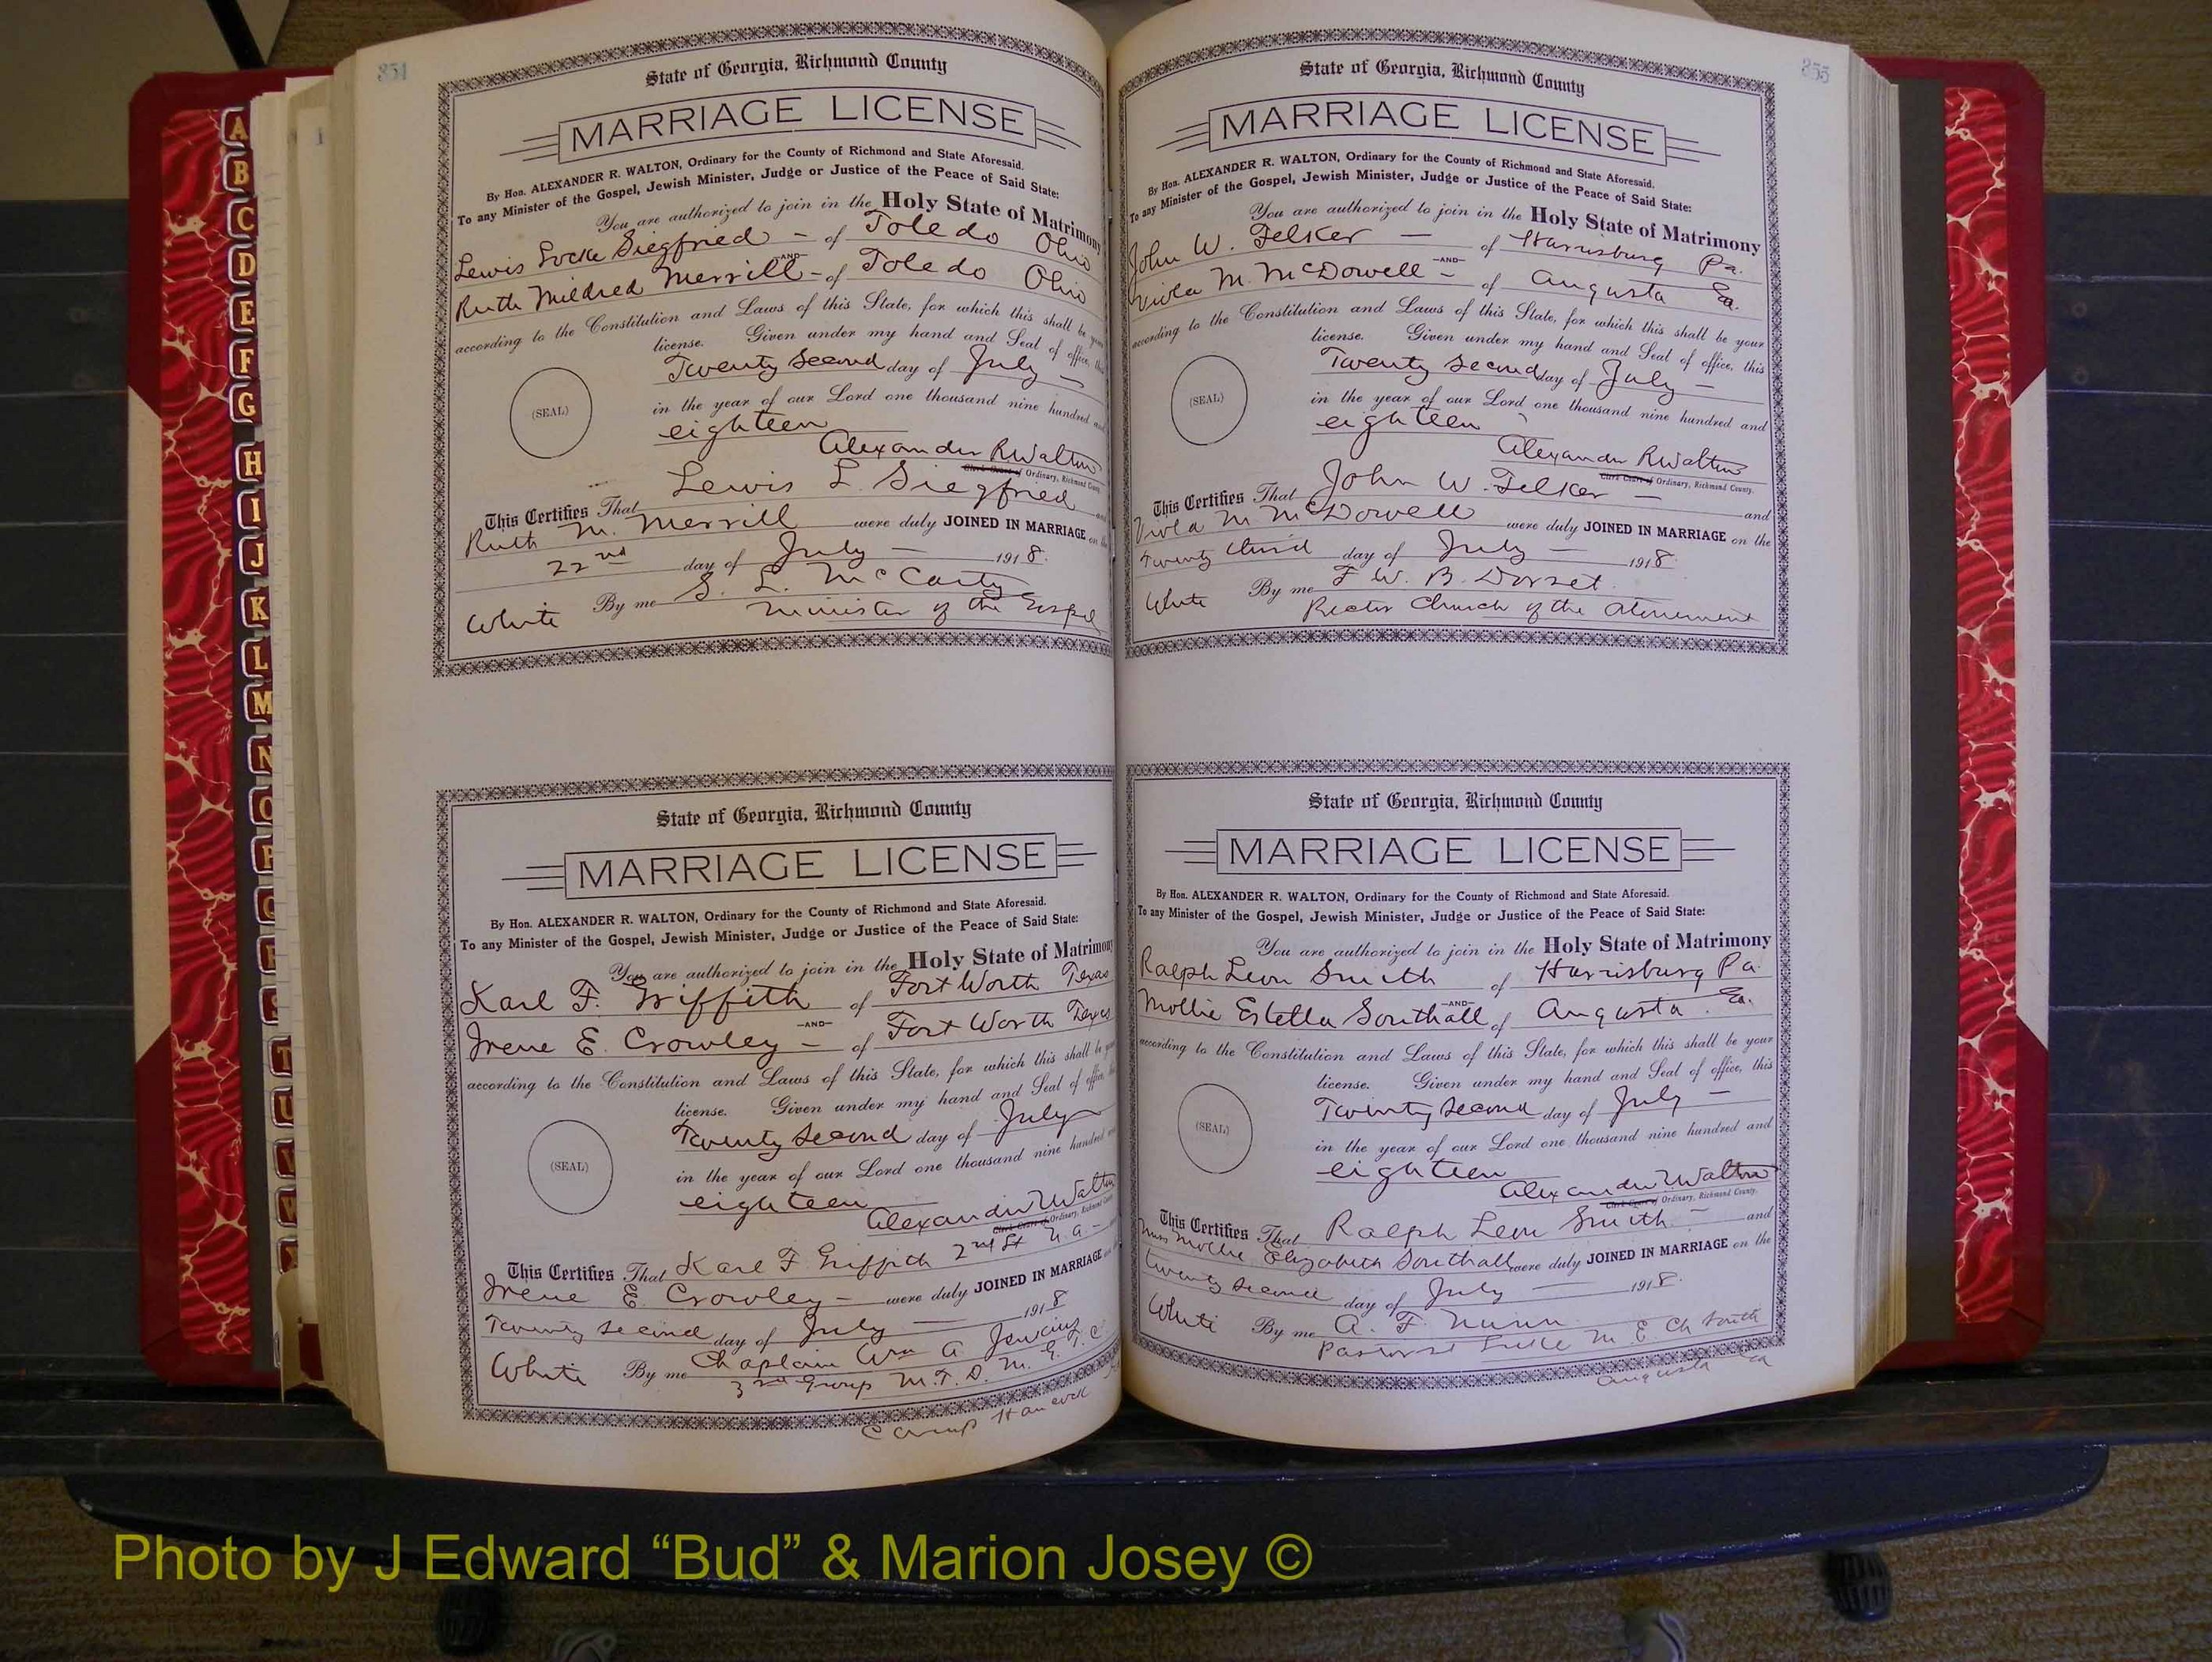 354
State of Georgia, Richmond County
MARRIAGE LICENSE
By Hon. ALEXANDER R. WALTON, Ordinary for the County of Richmond and State Aforesaid.
To any Minister of the Gospel, Jewish Minister, Judge or Justice of the Peace of Said State:
You are authorized to join in the Holy State of Matrimony
Lewis Locke Siegfried - of Toledo Ohio
-AND-
Ruth Mildred Merrill - of Toledo Ohio
according to the Constitution and Laws of this State, for which this shall be your
license. Given under my hand and Seal of office, this
Twenty Second day of July -
(SEAL)
in the year of our Lord one thousand nine hundred and
eighteen
Alexander R Walton
Clerk Court of Ordinary, Richmond County.
This Certifies That Lewis L. Siegfried and
Ruth M. Merrill were duly JOINED IN MARRIAGE on the
22nd day of July - 1918.
By me S. L. McCarty
White Minister of the Gospel
State of Georgia, Richmond County
MARRIAGE LICENSE
By Hon. ALEXANDER R. WALTON, Ordinary for the County of Richmond and State Aforesaid.
To any Minister of the Gospel, Jewish Minister, Judge or Justice of the Peace of Said State:
You are authorized to join in the Holy State of Matrimony
Karl F. Griffith of Fort Worth Texas
-AND-
Irene E. Crowley - of Fort Worth Texas
according to the Constitution and Laws of this State, for which this shall be your
license. Given under my hand and Seal of office, this
Twenty Second day of July
(SEAL)
in the year of our Lord one thousand nine hundred and
eighteen
Alexander R Walton
Clerk Court of Ordinary, Richmond County.
This Certifies That Karl F Griffith 2nd Lt
Irene E Crowley - were duly JOINED IN MARRIAGE on
Twenty second day of July - 1918
By me Chaplain Wm A Jenkins
White 3rd Group M. T. D. M. G. T. C
Camp Hancock
355
State of Georgia, Richmond County
MARRIAGE LICENSE
By Hon. ALEXANDER R. WALTON, Ordinary for the County of Richmond and State Aforesaid.
To any Minister of the Gospel, Jewish Minister, Judge or Justice of the Peace of Said State:
You are authorized to join in the Holy State of Matrimony
John W. Felker - of Harrisburg Pa.
-AND-
Viola M. McDowell - of Augusta Ga.
according to the Constitution and Laws of this State, for which this shall be your
license. Given under my hand and Seal of office, this
Twenty Second day of July -
(SEAL)
in the year of our Lord one thousand nine hundred and
eighteen
Alexander R Walton
Clerk Court of Ordinary, Richmond County.
This Certifies That John W. Felker - and
Viola M McDowell were duly JOINED IN MARRIAGE on the
Twenty third day of July - 1918.
By me F W. B. Dorset.
White Rector Church of the Atonement
State of Georgia, Richmond County
MARRIAGE LICENSE
By Hon. ALEXANDER R. WALTON, Ordinary for the County of Richmond and State Aforesaid.
To any Minister of the Gospel, Jewish Minister, Judge or Justice of the Peace of Said State:
You are authorized to join in the Holy State of Matrimony
Ralph Leon Smith of Harrisburg Pa.
-AND-
Mollie Estella Southall of Augusta Ga.
according to the Constitution and Laws of this State, for which this shall be your
license. Given under my hand and Seal of office, this
Twenty Second day of July -
(SEAL)
in the year of our Lord one thousand nine hundred and
eighteen
Alexander R Walton
Clerk Court of Ordinary, Richmond County.
This Certifies That Ralph Leon Smith - and
Miss Mollie Elizabeth Southall were duly JOINED IN MARRIAGE on the
twenty second day of July 1918.
By me A. F. Nunn
White Pastor St Luke M. E. Ch South
Augusta Ga
A
B
C
D
E
F
G
H
I
J
K
L
M
N
O
P
Q
R
S
T
U
V
W
Photo by J Edward “Bud” & Marion Josey ©